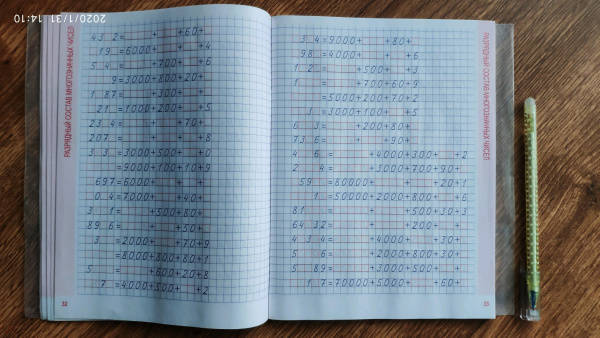 2020/1/31 14:10
РАЗРЯДНЫЙ СОСТАВ МНОГОЗНАЧНЫХ ЧИСЕЛ
43 2= + +60+
19 =6000+ + +4
5 4 = +700+ +6
9=3000+800+20+
1 87= +300+ +
21 =1000+200+ +5
23 4= + +70+
207 = + + +8
3 3 =3000+500+ +0
=9000+100+10+9
697=6000+ + +
0 4=7000+ +40+
3 1= +500+80+
89 6= + +50+
3 =2000+ +70+9
=8000+800+80+1
5 = +600+20+8
7 =4000+500+ +2
32
РАЗРЯДНЫЙ СОСТАВ МНОГОЗНАЧНЫХ ЧИСЕЛ
3 4=9000+ +80+
98 =4000+ + +6
1 2 = +500+ +3
1 = +700+60+9
=5000+200+70+2
3 =3000+100+ +5
6 3 = +200+80+
73 6= + +90+
4 6 = +4000+300+ +2
2 4 = +3000+700+90+
59 =80000+ + +20+1
1 =50000+2000+800+ +6
81 = + +500+30+3
64 32= + +200+ +
4 3 4= +4000+ +30+
5 6 = +2000+800+30+
5 89 = +3000+500+ +
1 7=70000+5000+ +60+
33